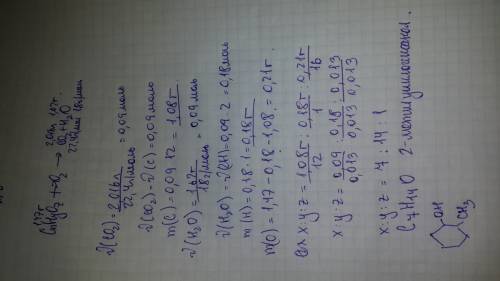 1,47г 2,016л 1,62г
CxHyOz + O2 → CO2 + H2O
22,4л/моль 18г/моль
ν(CO2) = 2,016л / 22,4л/моль = 0,09 моль
ν(CO2) - ν(C) = 0,09 моль
m(C) = 0,09 · 12 = 1,08г
ν(H2O) = 1,62г / 18г/моль = 0,09 моль
ν(H2O) = ν(2H) = 0,09 · 2 = 0,18 моль
m(H) = 0,18 · 1 = 0,18г
m(O) = 1,47 - 0,18 - 1,08 = 0,21г
x:y:z = 1,08г/12 : 0,18г/1 : 0,21г/16
x:y:z = 0,09/0,013 : 0,18/0,013 : 0,013/0,013
x:y:z = 7 : 14 : 1
C7H14O 2-метилциклогексанол.
OH
CH3